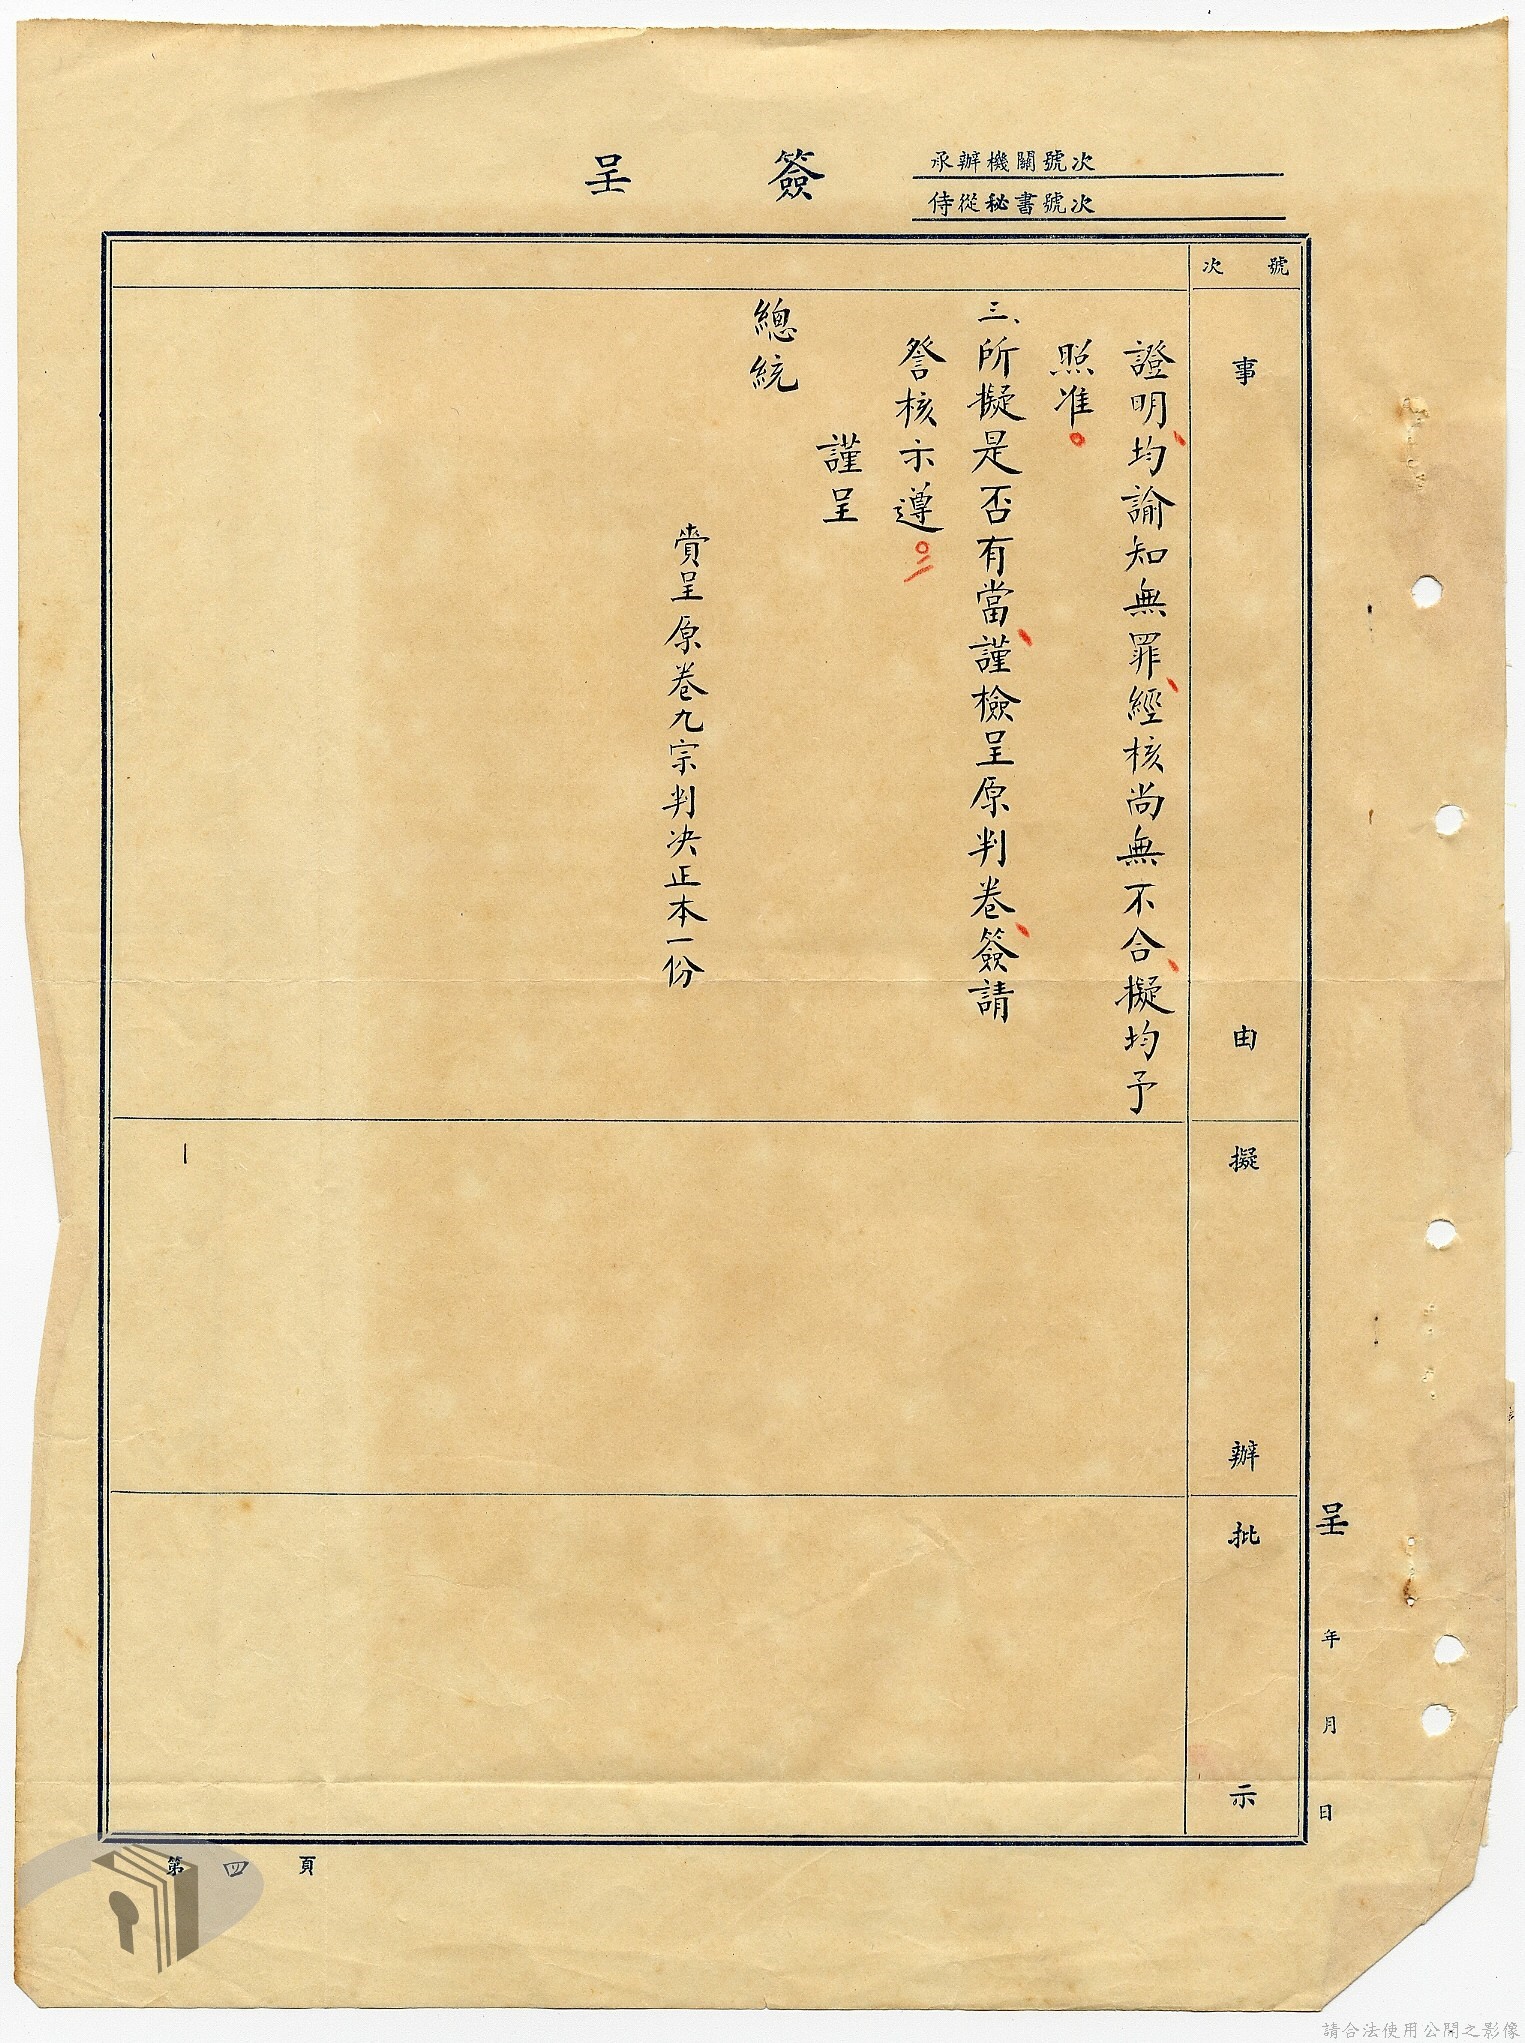 簽呈
承辦機關號次
侍從秘書號次
號次
事由
擬辦
批示
證明、均諭知無罪、經核尚無不合、擬均予
照准。
三、所擬是否有當、謹檢呈原判卷、簽請
詧核示遵。
謹呈
總統
賷呈原卷九宗判决正本一份
呈 年 月 日
第四頁
請合法使用公開之影像